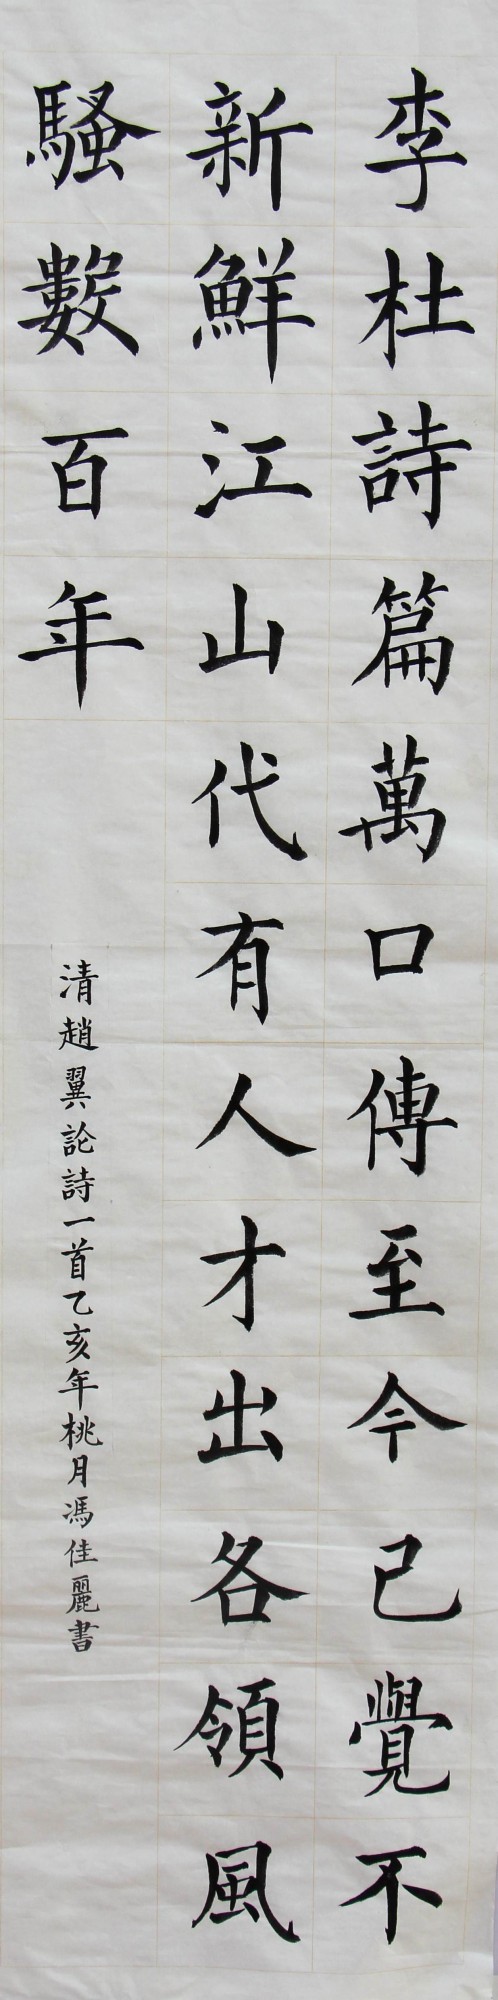 李杜詩篇萬口傳至今已覺不
新鮮江山代有人才出各領風
騷數百年
清趙翼論詩一首乙亥年桃月馮佳麗書